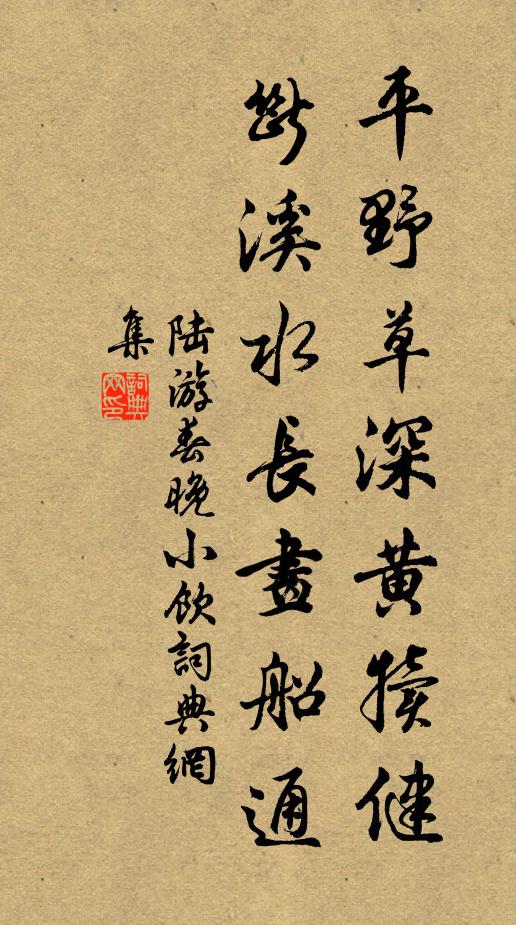 平野草深黄犢健
斷溪水長畫船通
陸游春晚小飲詞典網
集
詞典
网印